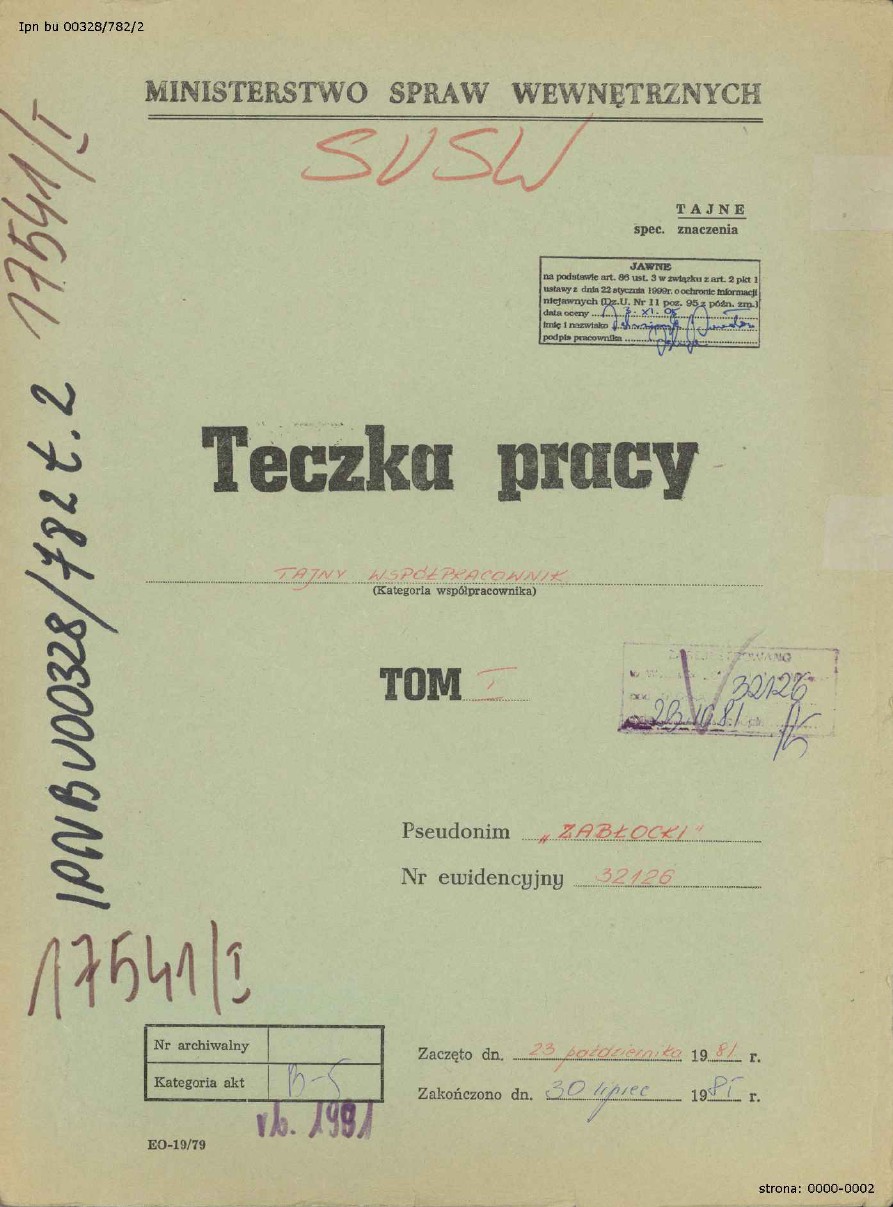 Ipn bu 00328/782/2
MINISTERSTWO SPRAW WEWNĘTRZNYCH
SUSW
TAJNE
spec. znaczenia
JAWNE
na podstawie art. 86 ust. 3 w związku z art. 2 pkt 1
ustawy z dnia 22 stycznia 1999r. o ochronie informacji
niejawnych (Dz.U. Nr 11 poz. 95 z późn. zm.)
data oceny
imię i nazwisko
podpis pracownika
17541/I
IPN BU 00328/782 t. 2
Teczka pracy
TAJNY WSPÓŁPRACOWNIK
(Kategoria współpracownika)
TOM I
32126
23 10 81
Pseudonim „ZABŁOCKI"
Nr ewidencyjny 32126
17541/I
Nr archiwalny
Kategoria akt B-5
1991
Zaczęto dn. 23 października 1981 r.
Zakończono dn. 30 lipiec 198 r.
EO-19/79
strona: 0000-0002